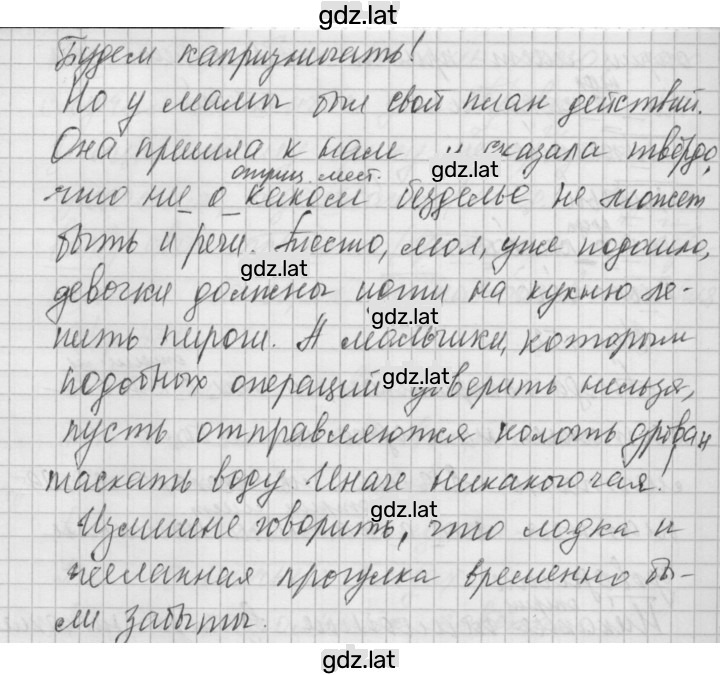 gdz.lat
Будем капризничать!
Но у мамы был свой план действий.
Она пришла к нам и сказала твёрдо,
gdz.lat
отриц. мест.
что ни о каком безделье не может
быть и речи. Тесто, мол, уже подошло,
gdz.lat
девочки должны идти на кухню ле-
gdz.lat
пить пироги. А мальчики, которым
подобных операций доверить нельзя,
gdz.lat
пусть отправляются колоть дрова и
таскать воду. Иначе никакого чая!
gdz.lat
Излишне говорить, что лодка и
желанная прогулка временно бы-
ли забыты.
gdz.lat